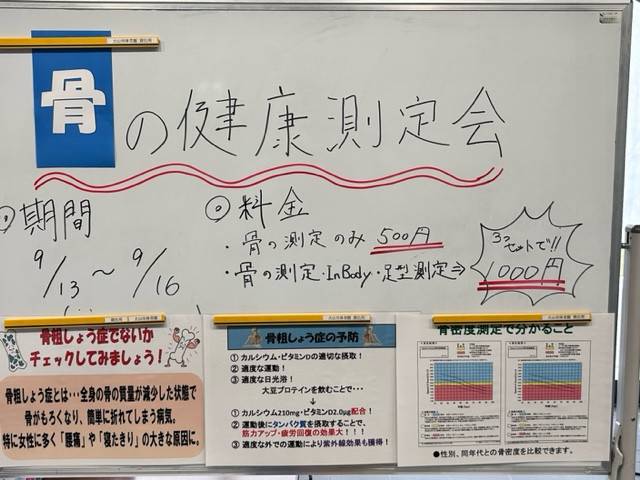 骨の健康測定会
◎期間
9/13～9/16
◎料金
・骨の測定のみ 500円
・骨の測定・InBody・足型測定⇒
3つセットで!!
1000円
骨粗しょう症でないか
チェックしてみましょう！
骨粗しょう症とは･･･全身の骨の質量が減少した状態で
骨がもろくなり、簡単に折れてしまう病気。
特に女性に多く「腰痛」や「寝たきり」の大きな原因に。
骨粗しょう症の予防
① カルシウム・ビタミンDの適切な摂取！
② 適度な運動！
③ 適度な日光浴！
大豆プロテインを飲むことで･･･
↓
① カルシウム210mg・ビタミンD2.0μg配合！
② 運動後にタンパク質を摂取することで、
筋力アップ・疲労回復の効果大！！！
③ 適度な外での運動により紫外線効果も獲得！
骨密度測定で分かること
●性別、同年代との骨密度を比較できます。